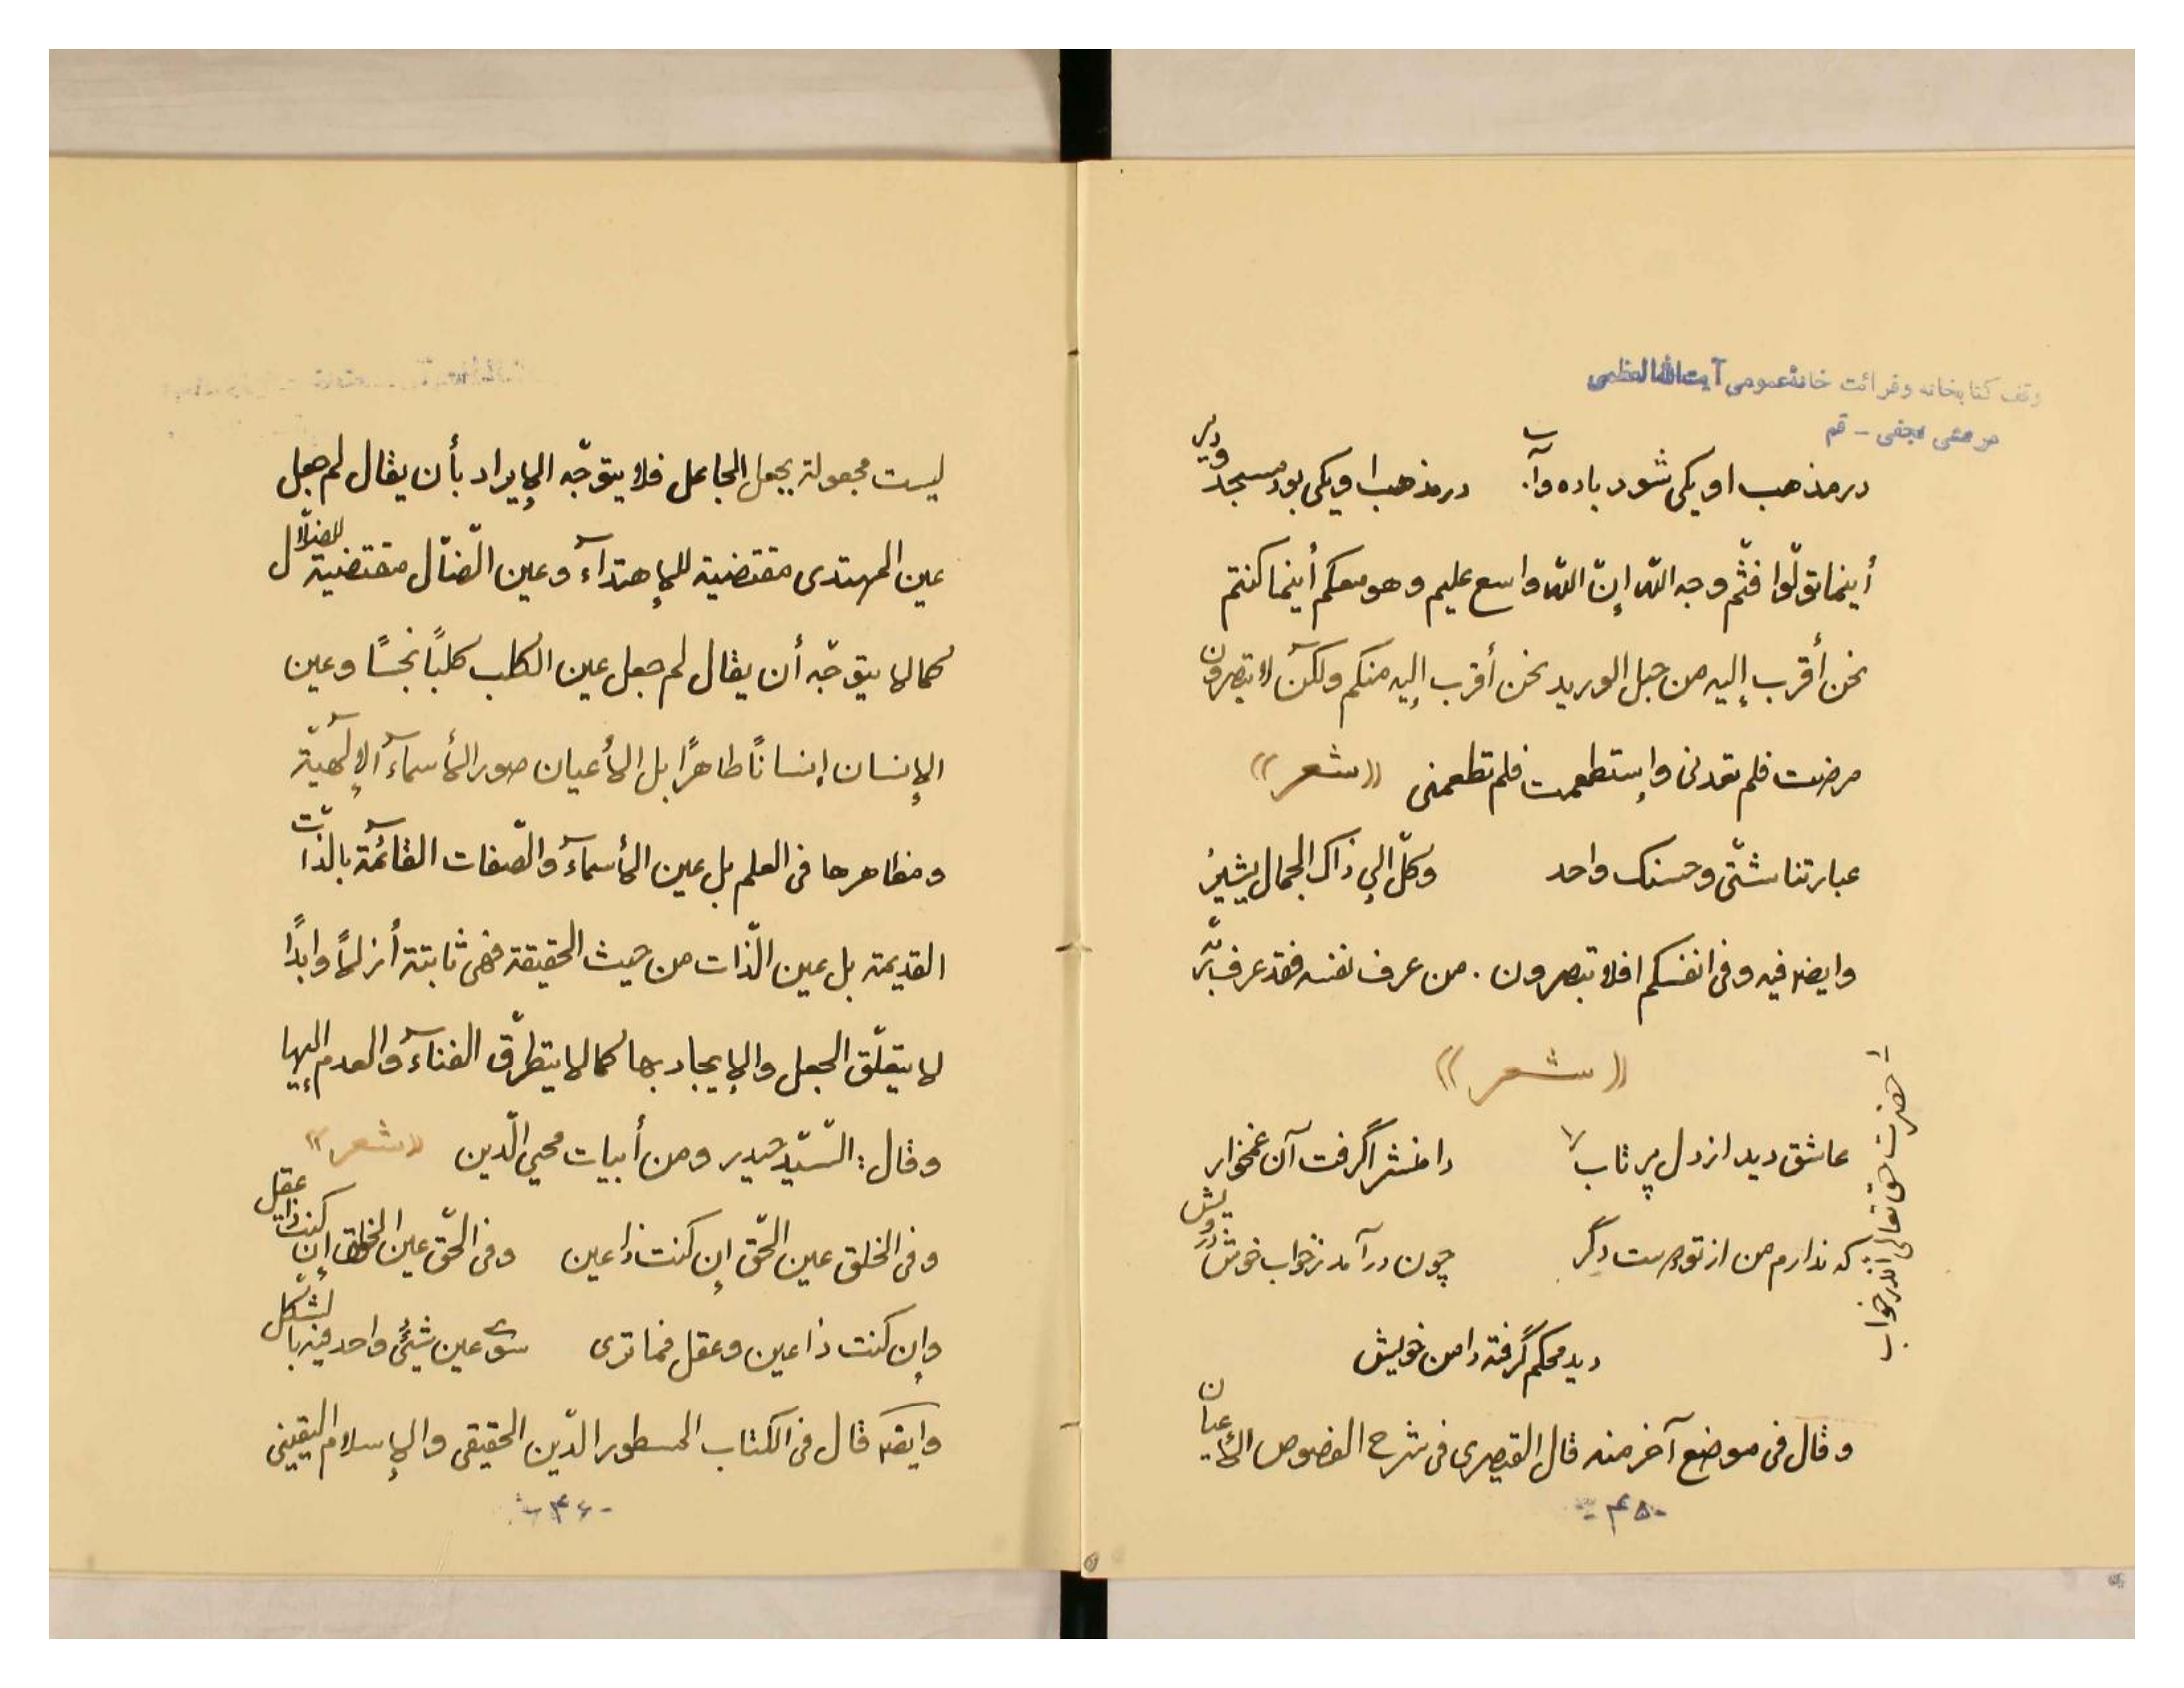 وقف کتابخانه وقرائت خانهٔ عمومی آیت الله العظمی
مرعشی نجفی - قم
درمذهب او یکی شود باده وآب درمذهب او یکی بود مسجد ودیر
أینما تولّوا فثمّ وجه اللّه إنّ اللّه واسع علیم وهو معکم أینما کنتم
نحن أقرب إلیه من حبل الورید نحن أقرب إلیه منکم ولکن لا تبصرون
مرضت فلم تعدنی وإستطعمت فلم تطعمنی «شعر»
عبارتنا شتّی وحسنک واحد وکلّ إلی ذاک الجمال یشیرُ
وایضا فیه وفی انفسکم افلا تبصرون . من عرف نفسه فقد عرف ربّه
«شعر»
عاشق دید از دل پر تاب حضرت حق تعالی اندر خواب
دامنش را گرفت آن غمخوار
که ندارم من از تو دست دگر چون درآمد ز خواب خوش درویش
دید محکم گرفته دامن خویش
وقال فی موضع آخر منه قال القیصری فی شرح الفصوص الأعیان
- ۴۵ -
لیست مجعولة بجعل الجاعل فلا یتوجّه الإیراد بأن یقال لم جعل
عین المهتدی مقتضیة للإهتدآء وعین الضّآل مقتضیة للضلال
کما لا یتوجّه أن یقال لم جعل عین الکلب کلبًا نجسًا وعین
الإنسان إنسانًا طاهرًا بل الأعیان صور الأسمآء الإلهیّة
ومظاهرها فی العلم بل عین الأسمآء والصّفات القآئمة بالذّات
القدیمة بل عین الذّات من حیث الحقیقة فهی ثابتة أزلًا وابدًا
لا یتعلّق الجعل والإیجاد بها کما لا یتطرّق الفنآء والعدم إلیها
وقال: السّیّد حیدر ومن أبیات محیی الدّین «شعر»
وفی الخلق عین الحّق إن کنت ذا عین وفی الحّق عین الخلق إن کنت ذا عقل
وإن کنت ذا عین وعقل فما تری سوی عین شیئٍ واحد فیه بالشّکل
وایضا قال فی الکتاب المسطور الدّین الحقیقی والإسلام الیقینی
- ۴۶ -